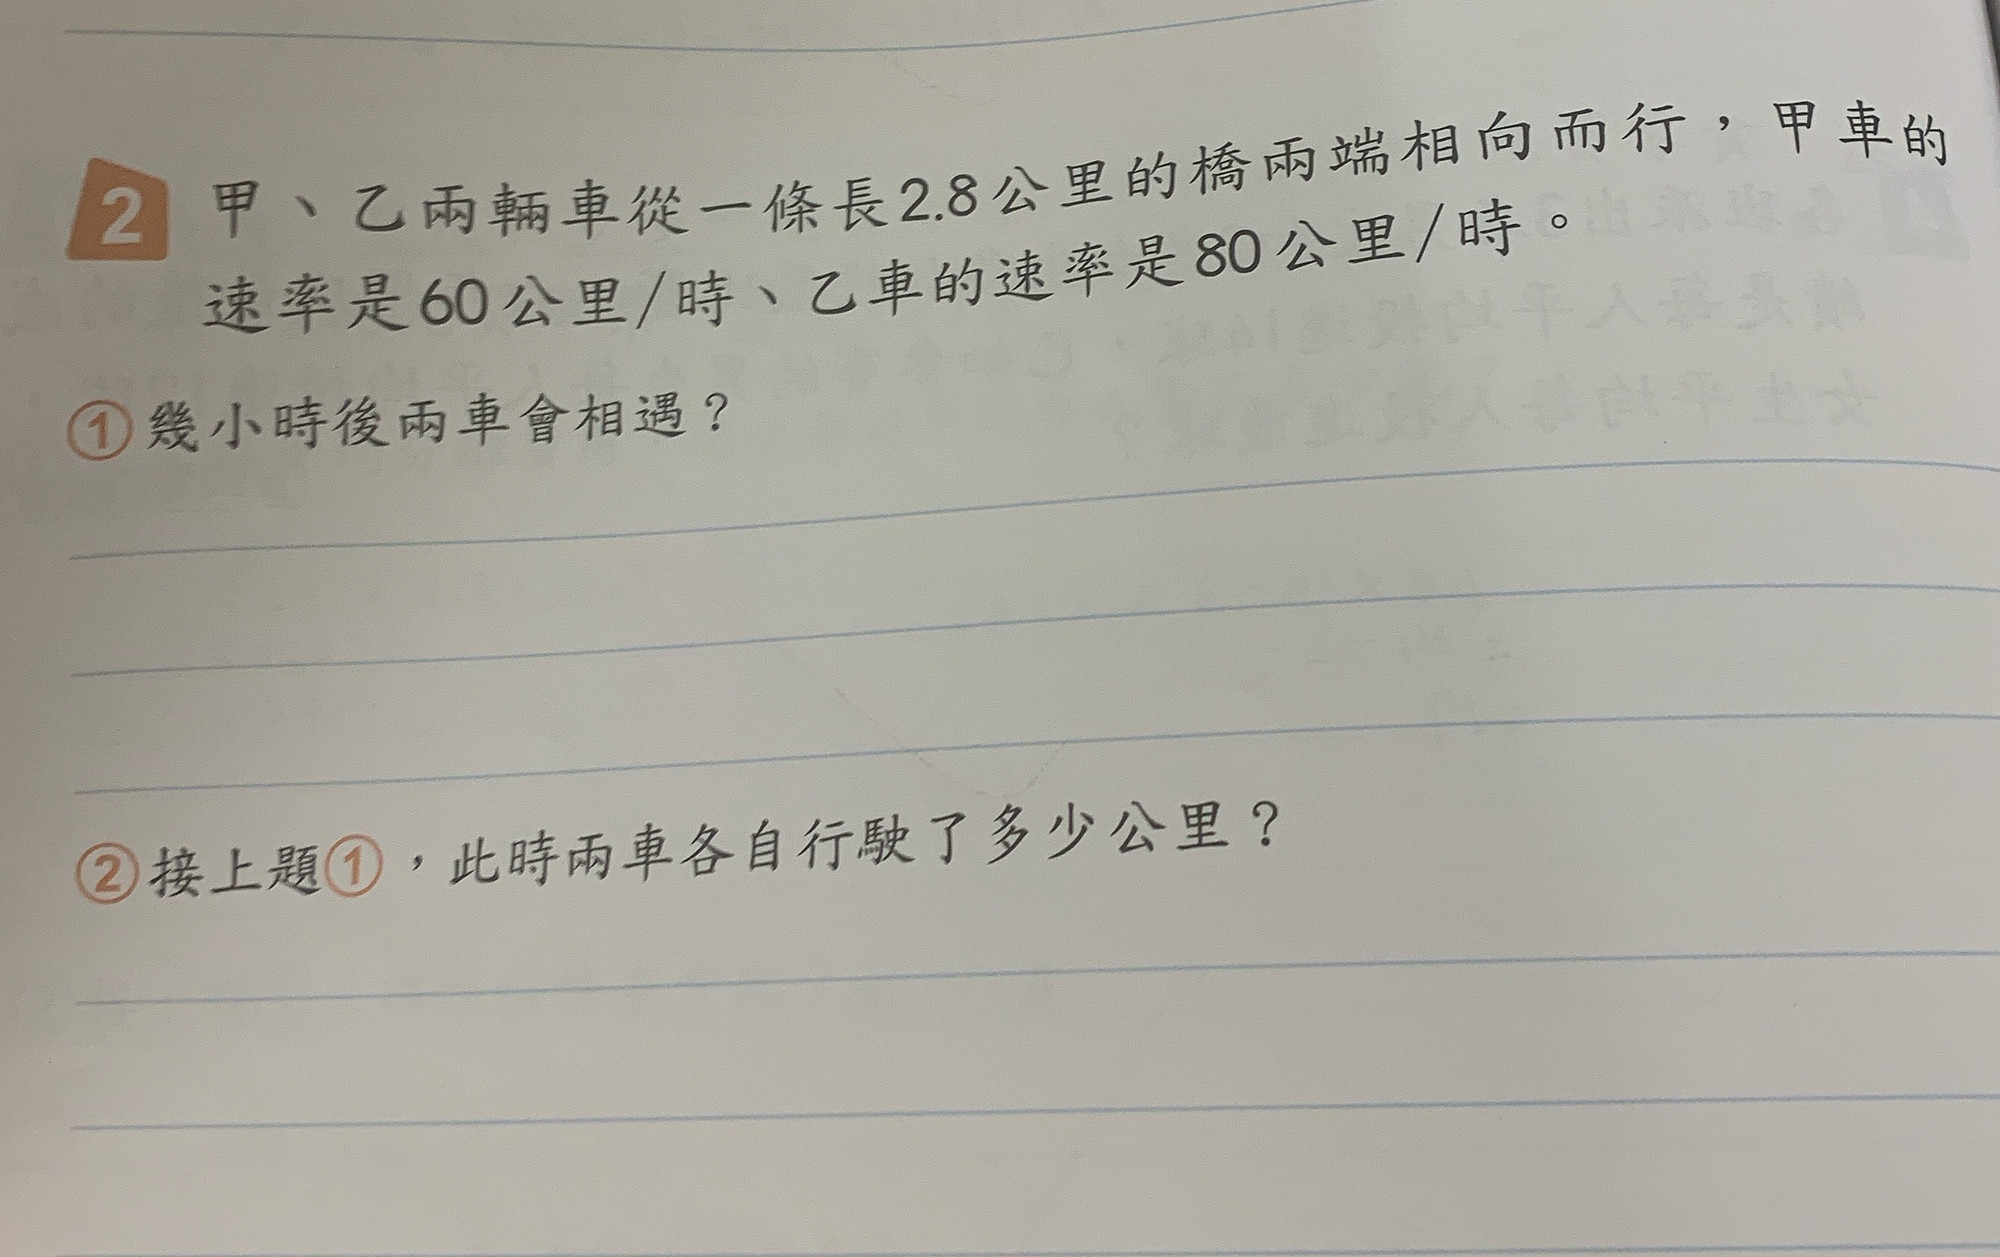 2 甲、乙兩輛車從一條長2.8公里的橋兩端相向而行，甲車的
速率是60公里/時、乙車的速率是80公里/時。
①幾小時後兩車會相遇？
②接上題①，此時兩車各自行駛了多少公里？